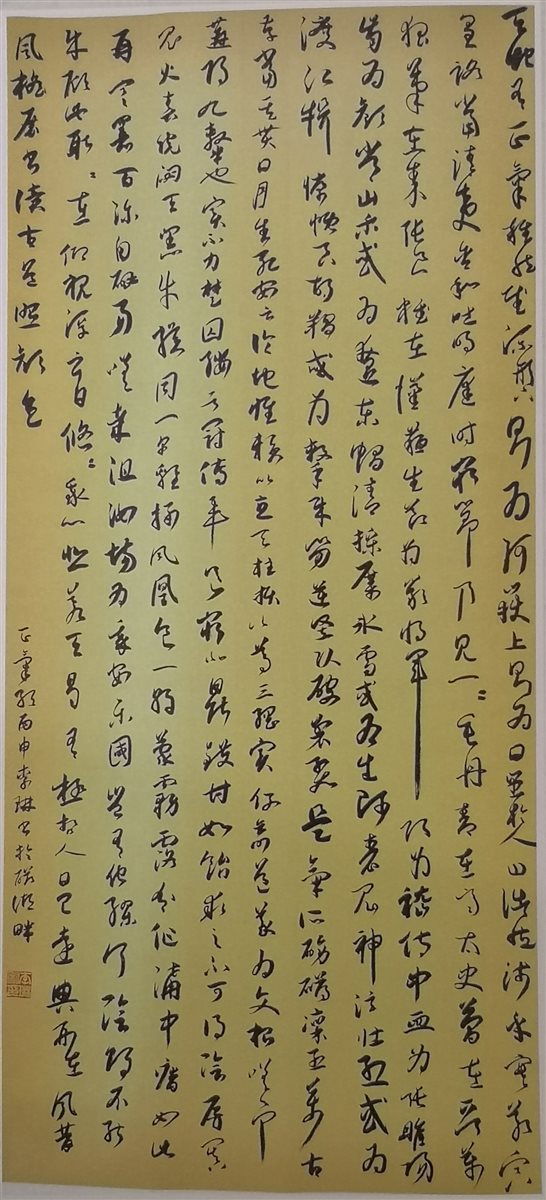 天地有正氣雜然賦流形下則為河嶽上則為日星於人曰浩然沛乎塞蒼冥
皇路當清夷含和吐明庭時窮節乃見一一垂丹青在齊太史簡在晉董
狐筆在秦張良椎在漢蘇武節為嚴將軍頭為嵇侍中血為張睢陽
齒為顏常山舌或為遼東帽清操厲冰雪或為出師表鬼神泣壯烈或為
渡江楫慷慨吞胡羯或為擊賊笏逆豎頭破裂是氣所磅礴凜烈萬古
存當其貫日月生死安足論地維賴以立天柱賴以尊三綱實係命道義為之根嗟予
遘陽九隸也實不力楚囚纓其冠傳車送窮北鼎鑊甘如飴求之不可得陰房闃
鬼火春院閟天黑牛驥同一皁雞棲鳳凰食一朝蒙霧露分作溝中瘠如此
再寒暑百沴自辟易嗟哉沮洳場為我安樂國豈有他繆巧陰陽不能
賊顧此耿耿在仰視浮雲白悠悠我心悲蒼天曷有極哲人日已遠典刑在夙昔
風檐展書讀古道照顏色
正氣歌丙申李琳書於磁湖畔